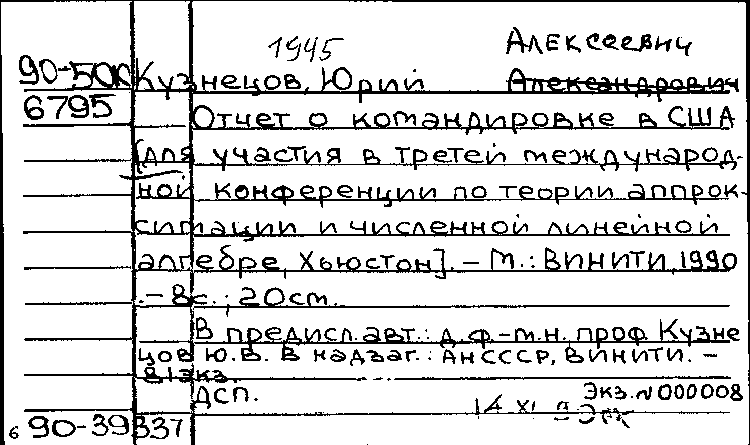 1945 Алексеевич
90-500 Кузнецов, Юрий Александрович
6795 Отчет о командировке в США
[для участия в третей международ-
ной конференции по теории аппрок-
симации и численной линейной
алгебре, Хьюстон]. – М.: ВИНИТИ, 1990
. – 8с.; 20см.
В предисл. авт.: д.ф.-м.н. проф Кузне
цов Ю.В. В надзаг.: АНСССР, ВИНИТИ. –
81экз.
ДСП. Экз. N000008
14 XI
6 90-39337